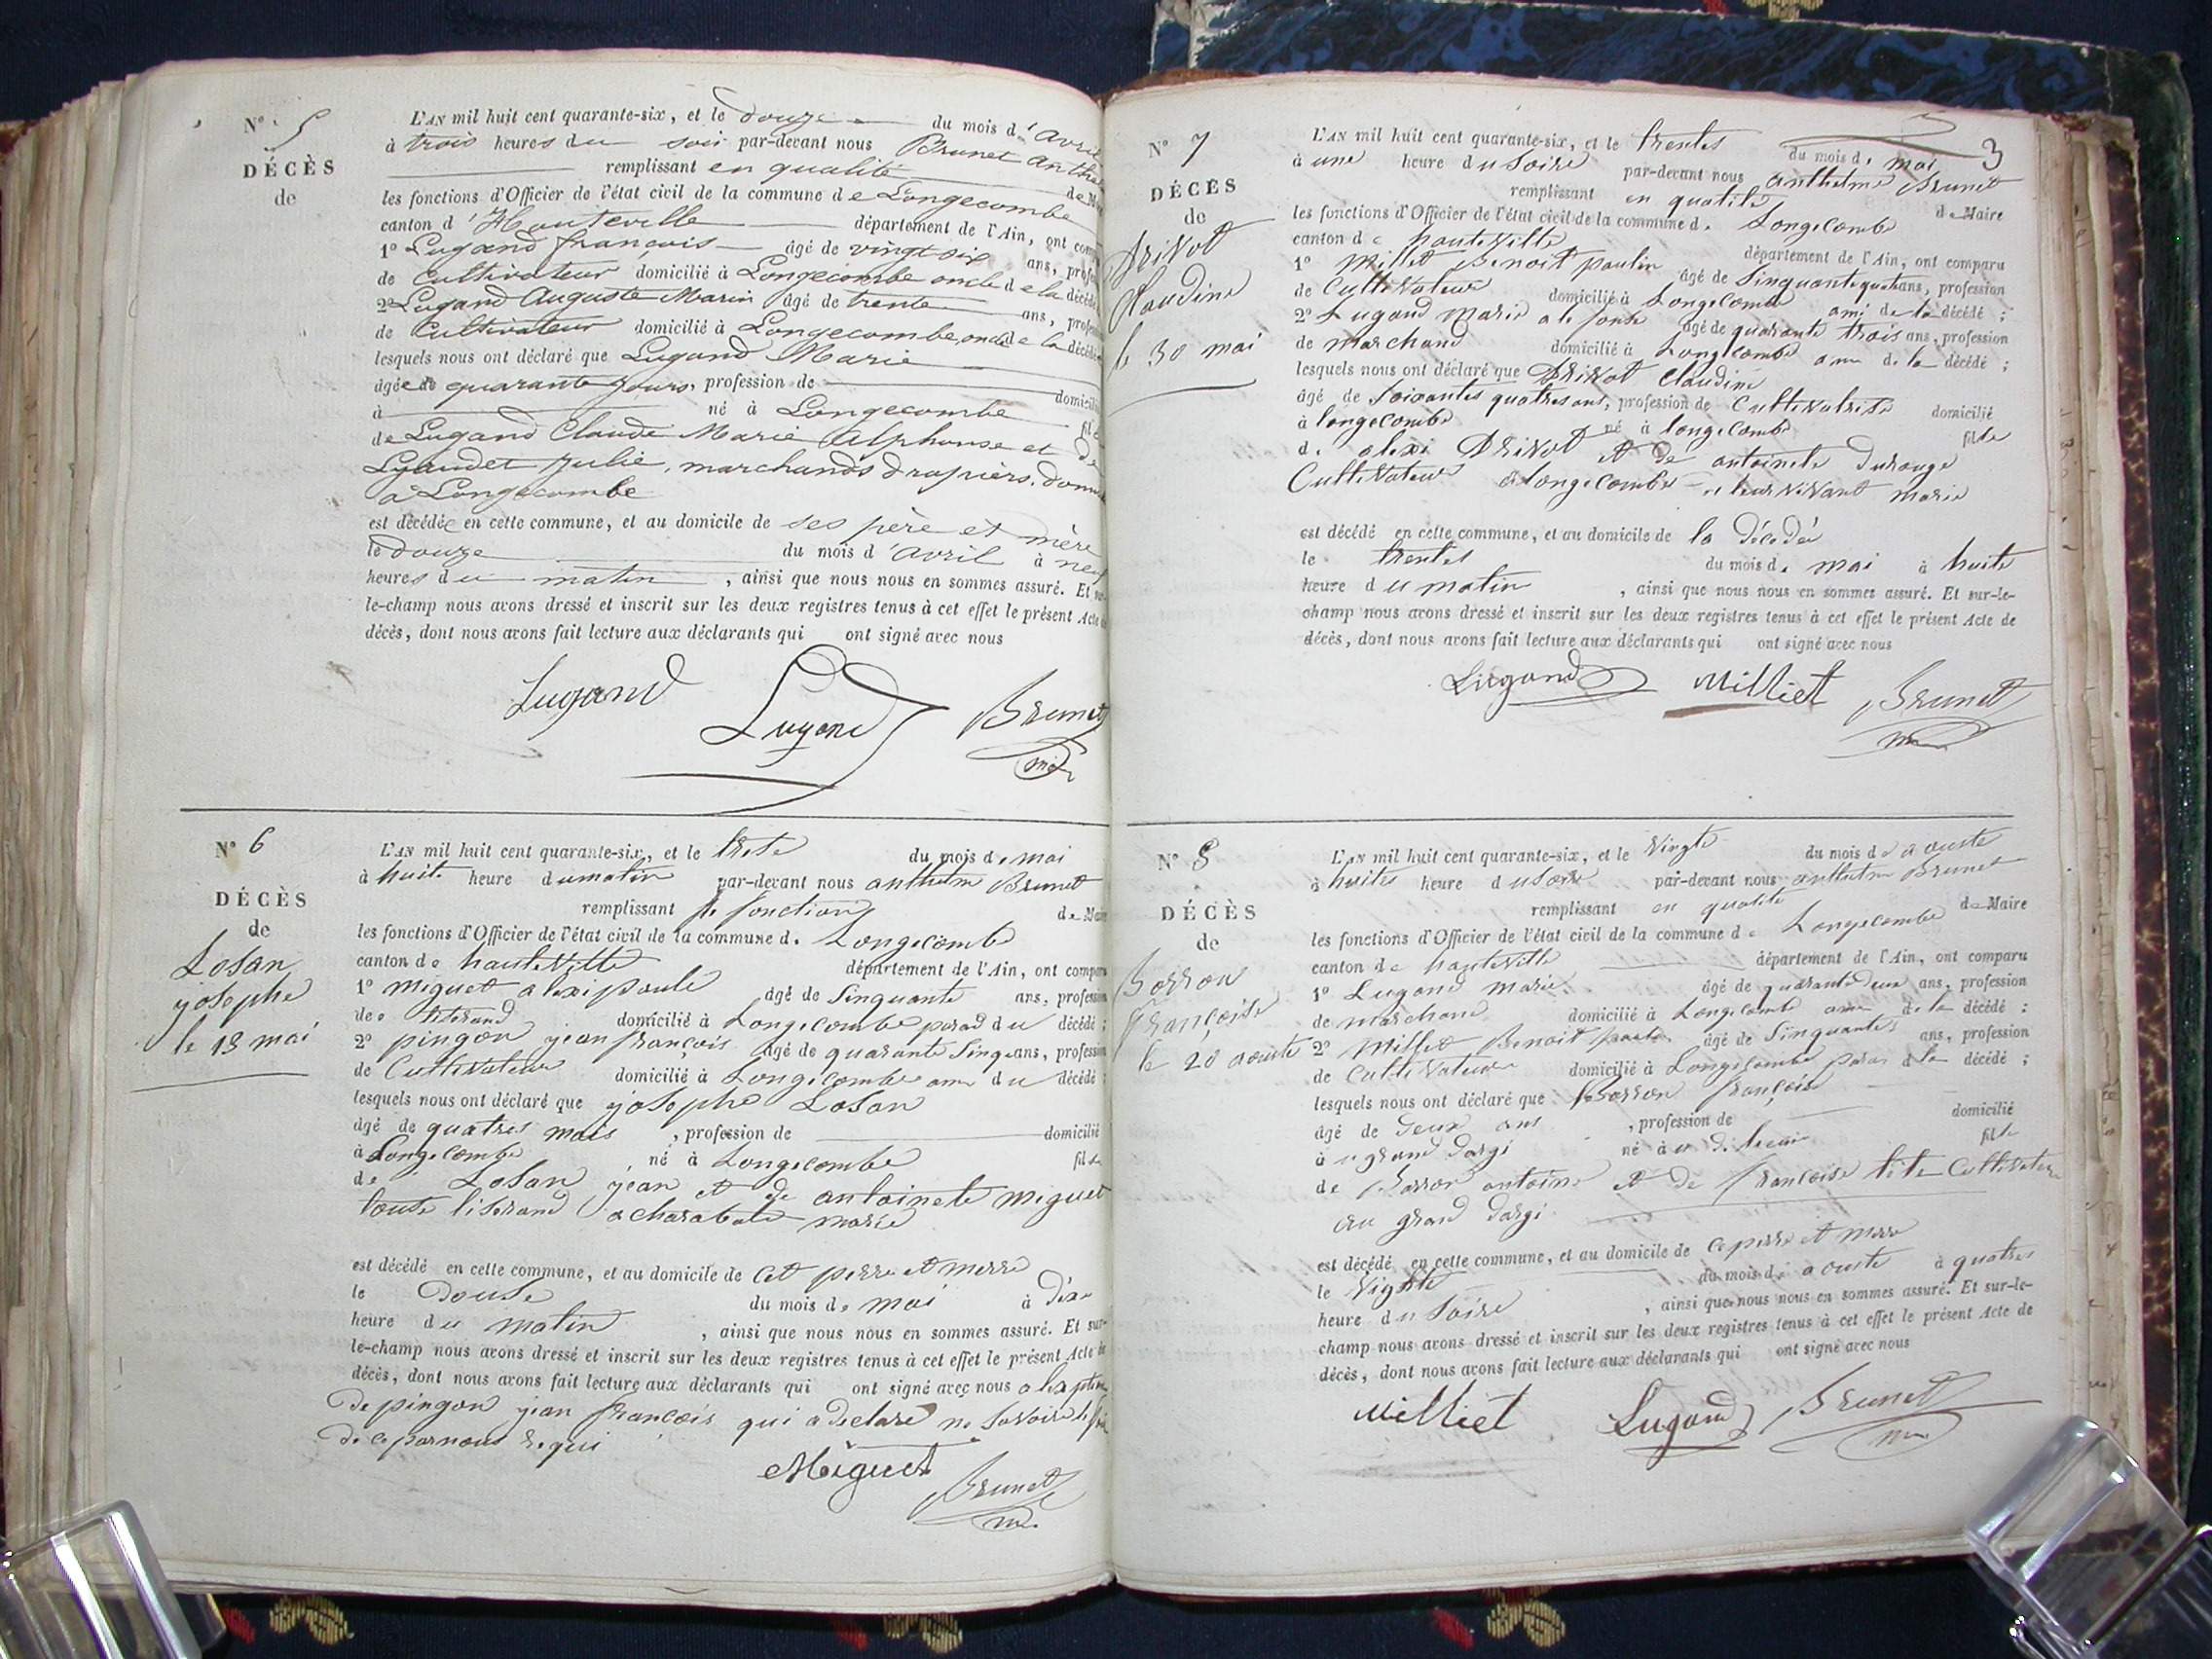 N° 5
DÉCÈS
de
L'AN mil huit cent quarante-six, et le douze du mois d'avril
à trois heures du soir par-devant nous Brunet Anthel
remplissant en qualité de M
les fonctions d'Officier de l'état civil de la commune de Longecombe
canton d'Hauteville département de l'Ain, ont comp
1° Lugand françois âgé de vingt six ans, profes
de Cultivateur domicilié à Longecombe oncle de la décédé
2° Lugand Auguste Marin âgé de trente ans, profes
de Cultivateur domicilié à Longecombe, oncle de la décédé
lesquels nous ont déclaré que Lugand Marie
âgée de quarante jours, profession de domicili
à né à Longecombe fil
de Lugand Claude Marie Alphonse et De
Lyaudet Julie, marchands drapiers, domic
à Longecombe
est décédée en cette commune, et au domicile de ses père et mère
le douze du mois d'avril à neuf
heures du matin, ainsi que nous nous en sommes assuré. Et sur-
le-champ nous avons dressé et inscrit sur les deux registres tenus à cet effet le présent Acte de
décès, dont nous avons fait lecture aux déclarants qui ont signé avec nous
Lugand Lugand Brunet
N° 6
DÉCÈS
de
Losan
josephe
le 13 mai
L'AN mil huit cent quarante-six, et le trese du mois de mai
à huit heure du matin par-devant nous anthelme Brunet
remplissant fonctions de Maire
les fonctions d'Officier de l'état civil de la commune de Longecombe
canton de hauteville département de l'Ain, ont comparu
1° miguet alexi paule âgé de Sinquante ans, profession
de tiserand domicilié à Longecombe paran du décédé ;
2° pingon jean françois âgé de quarante Sinq ans, profession
de Cultivateur domicilié à Longecombe ami du décédé ;
lesquels nous ont déclaré que josephe Losan
âgé de quatres mois, profession de domicilié
à Longecombe né à Longecombe fils
de Losan jean et de antoinete miguet
tiserand a charabote marié
est décédé en cette commune, et au domicile de cet perre et merre
le Douse du mois de mai à dix
heure du matin, ainsi que nous nous en sommes assuré. Et sur-
le-champ nous avons dressé et inscrit sur les deux registres tenus à cet effet le présent Acte de
décès, dont nous avons fait lecture aux déclarants qui ont signé avec nous
de pingon jean françois qui a declaré ne savoire le
de ce par nous requi
Miguet Brunet
3
N° 7
DÉCÈS
de
Drivot
Claudine
le 30 mai
L'AN mil huit cent quarante-six, et le trentes du mois de mai
à une heure du soire par-devant nous anthelme Brunet
remplissant en qualité de Maire
les fonctions d'Officier de l'état civil de la commune de Longecombe
canton de hauteville département de l'Ain, ont comparu
1° Millet Benoit paulin âgé de Sinquante quatre ans, profession
de Cultivateur domicilié à Longecombe ami de la décédé ;
2° Lugand marie alefonse âgé de quarante trois ans, profession
de marchand domicilié à Longecombe ami de la décédé ;
lesquels nous ont déclaré que Drivot Claudine
âgé de soixantes quatres ans, profession de Cultivatrise domicilié
à longecombe né à longecombe fille
de alexi Drivot et de antoinete
Cultivateur à longecombe de leur vivant marié
est décédé en cette commune, et au domicile de la décédée
le trentes du mois de mai à huite
heure du matin, ainsi que nous nous en sommes assuré. Et sur-le-
champ nous avons dressé et inscrit sur les deux registres tenus à cet effet le présent Acte de
décès, dont nous avons fait lecture aux déclarants qui ont signé avec nous
Lugand Milliet Brunet
N° 8
DÉCÈS
de
Borron
françoise
le 20 aouste
L'AN mil huit cent quarante-six, et le vingte du mois de aouste
à huites heure du soire par-devant nous anthelme Brunet
remplissant en qualité de Maire
les fonctions d'Officier de l'état civil de la commune de Longecombe
canton de hauteville département de l'Ain, ont comparu
1° Lugand marie âgé de quarante deux ans, profession
de marchand domicilié à Longecombe ami de la décédé ;
2° Millet Benoit paulin âgé de Sinquantes ans, profession
de Cultivateur domicilié à Longecombe paran de la décédé ;
lesquels nous ont déclaré que Borron françoise
âgé de deux ans, profession de domicilié
à u grand dargi né à fille
de Borron antoine et de françoise tête Cultivateur
au grand dargi
est décédé en cette commune, et au domicile de ce perre et merre
le vignte du mois de aouste à quatres
heure du soire, ainsi que nous nous en sommes assuré. Et sur-le-
champ nous avons dressé et inscrit sur les deux registres tenus à cet effet le présent Acte de
décès, dont nous avons fait lecture aux déclarants qui ont signé avec nous
Milliet Lugand Brunet